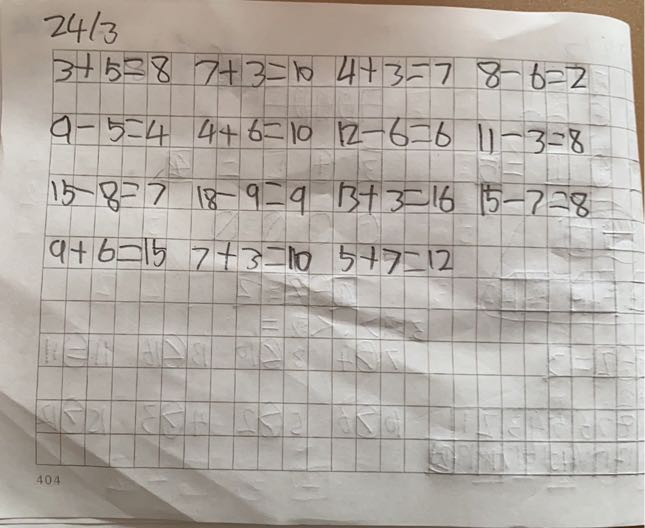 24/3
3+5=8 7+3=10 4+3=7 8-6=2
9-5=4 4+6=10 12-6=6 11-3=8
15-8=7 18-9=9 13+3=16 15-7=8
9+6=15 7+3=10 5+7=12
404